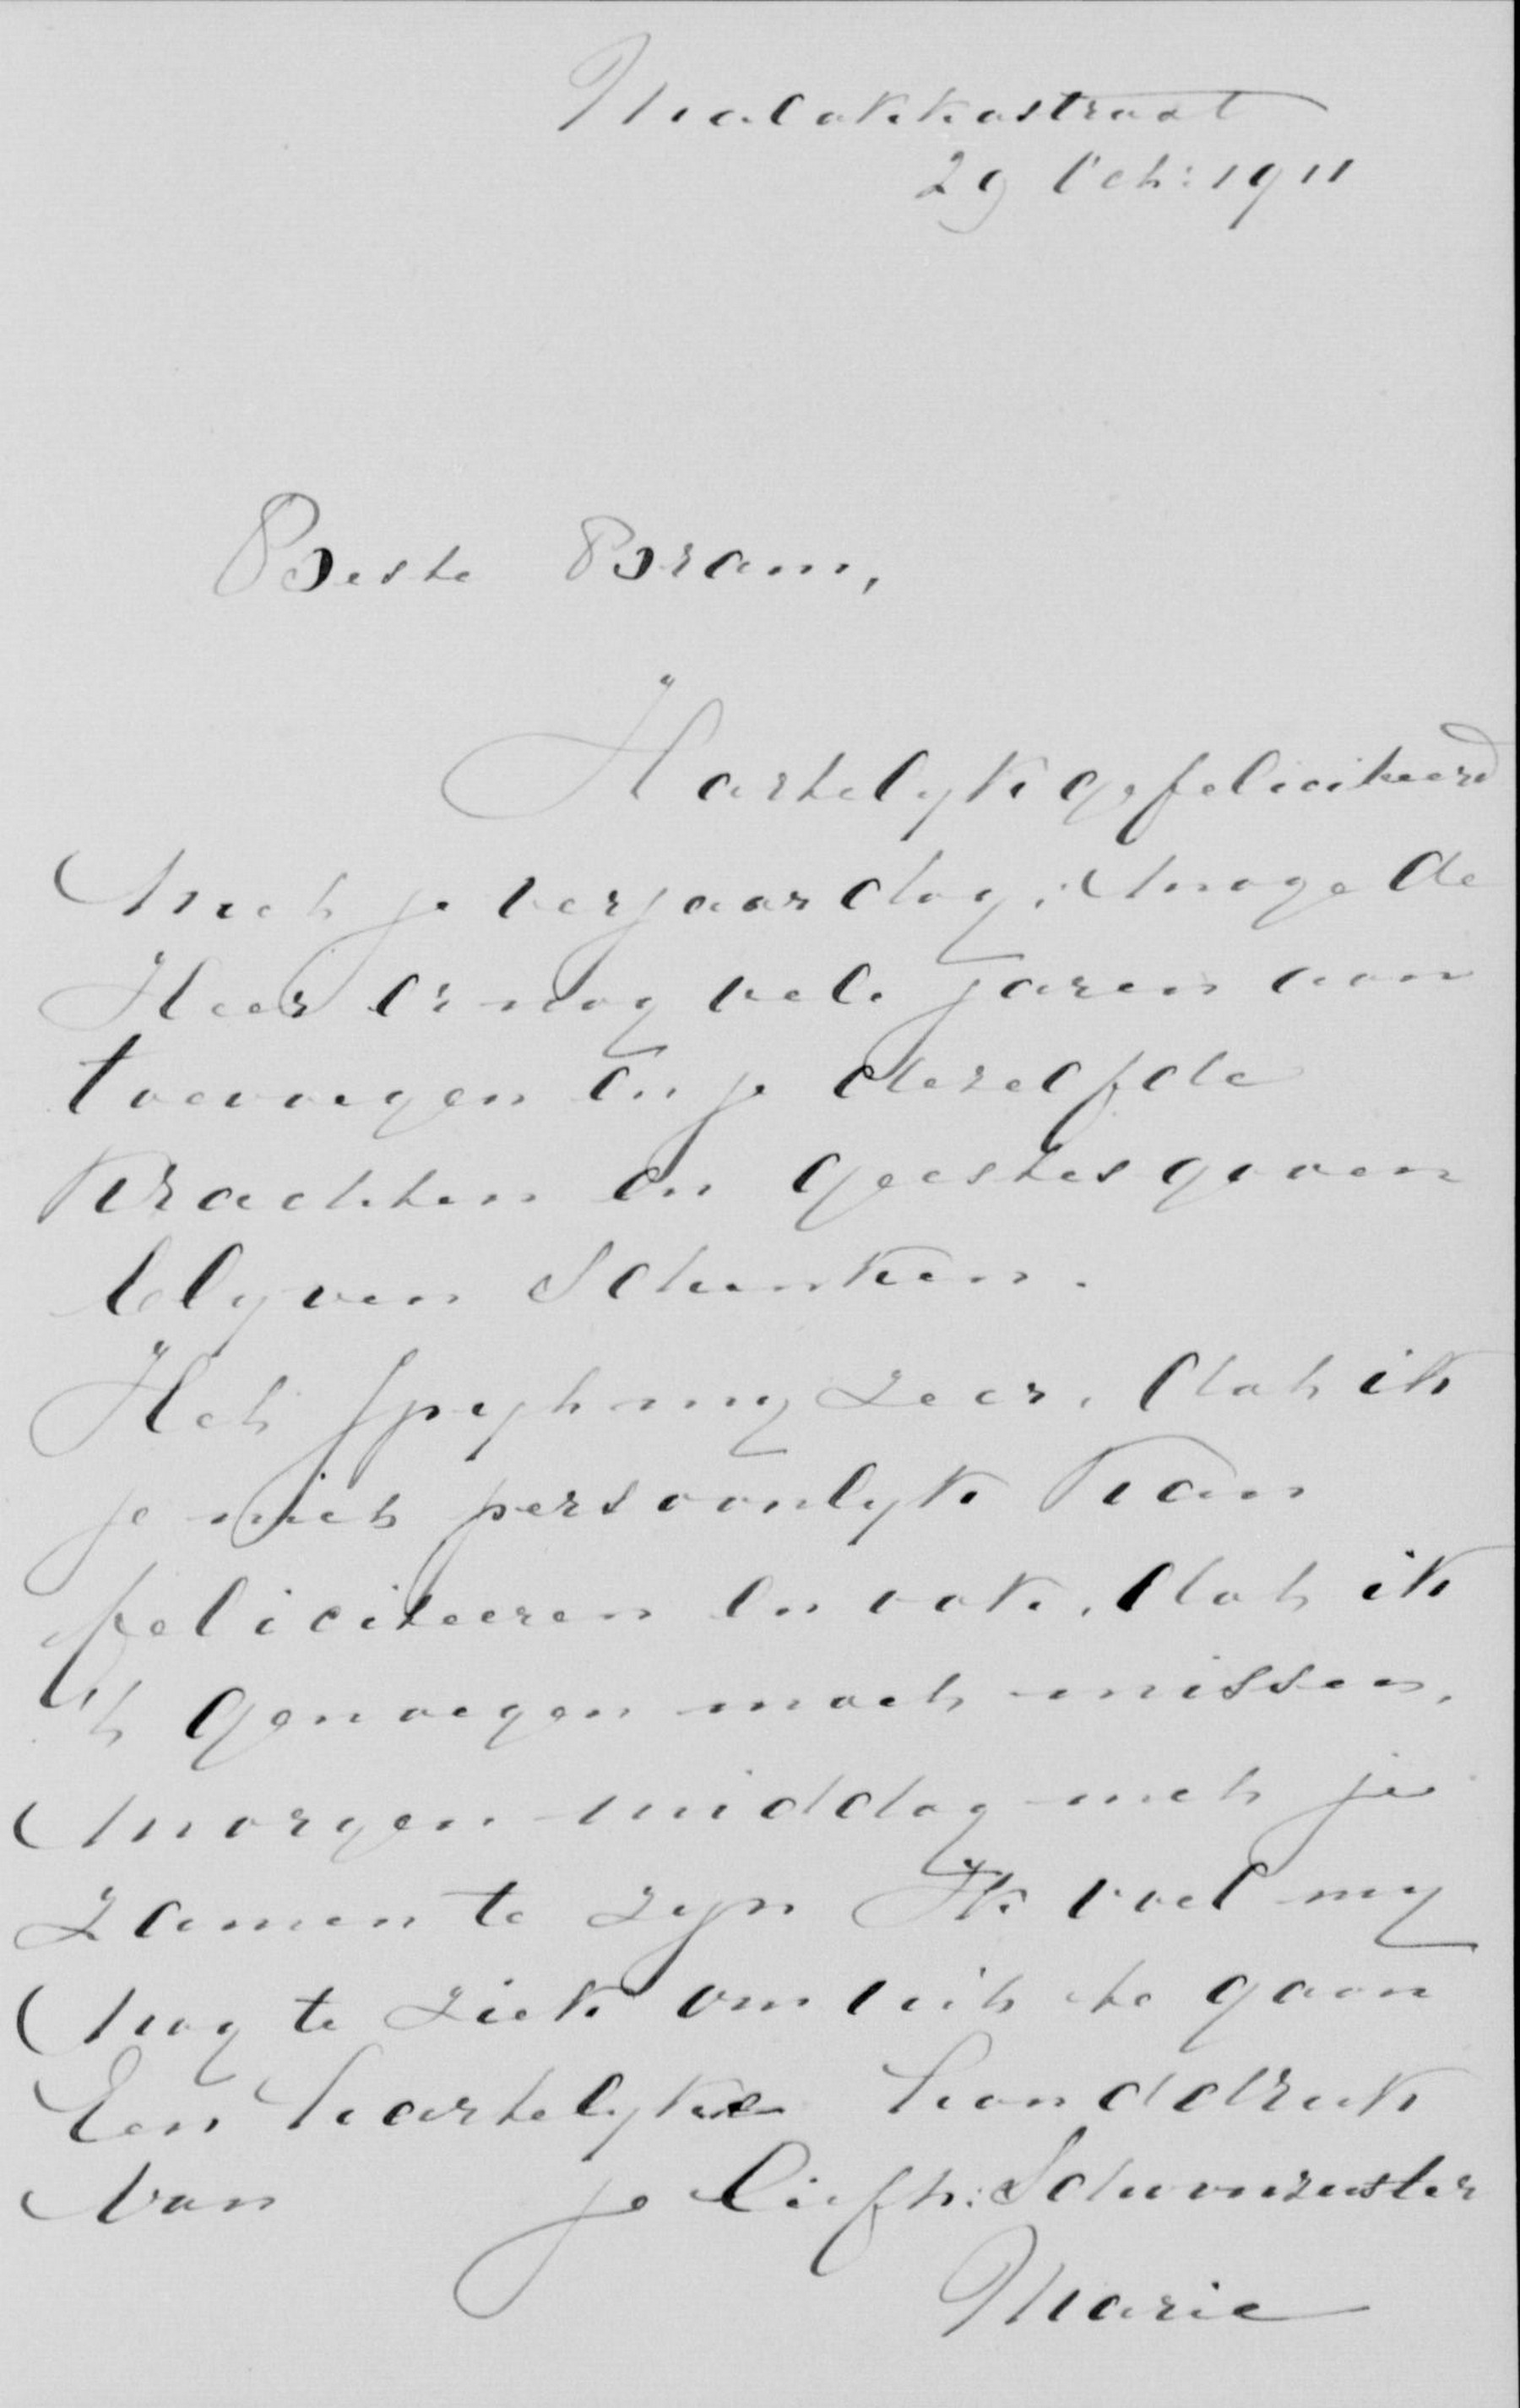 Malakkastraat
29 Oct: 1911
Beste Bram,
Hartelyk gefeliciteerd
Met je verjaardag. Moge de
Heer er nog vele jaren aan
toevoegen en je dezelfde
krachten en geestesgaven
blyven Schenken.
Het Spyt my zeer, dat ik
je niet persoonlyk kan
feliciteeren en ook, dat ik
't genoegen moet missen,
morgen middag met je
zamen te zyn Ik voel my
nog te ziek om uit te gaan
Een hartelyke handdruk
van je liefh: Schoonzuster
Marie